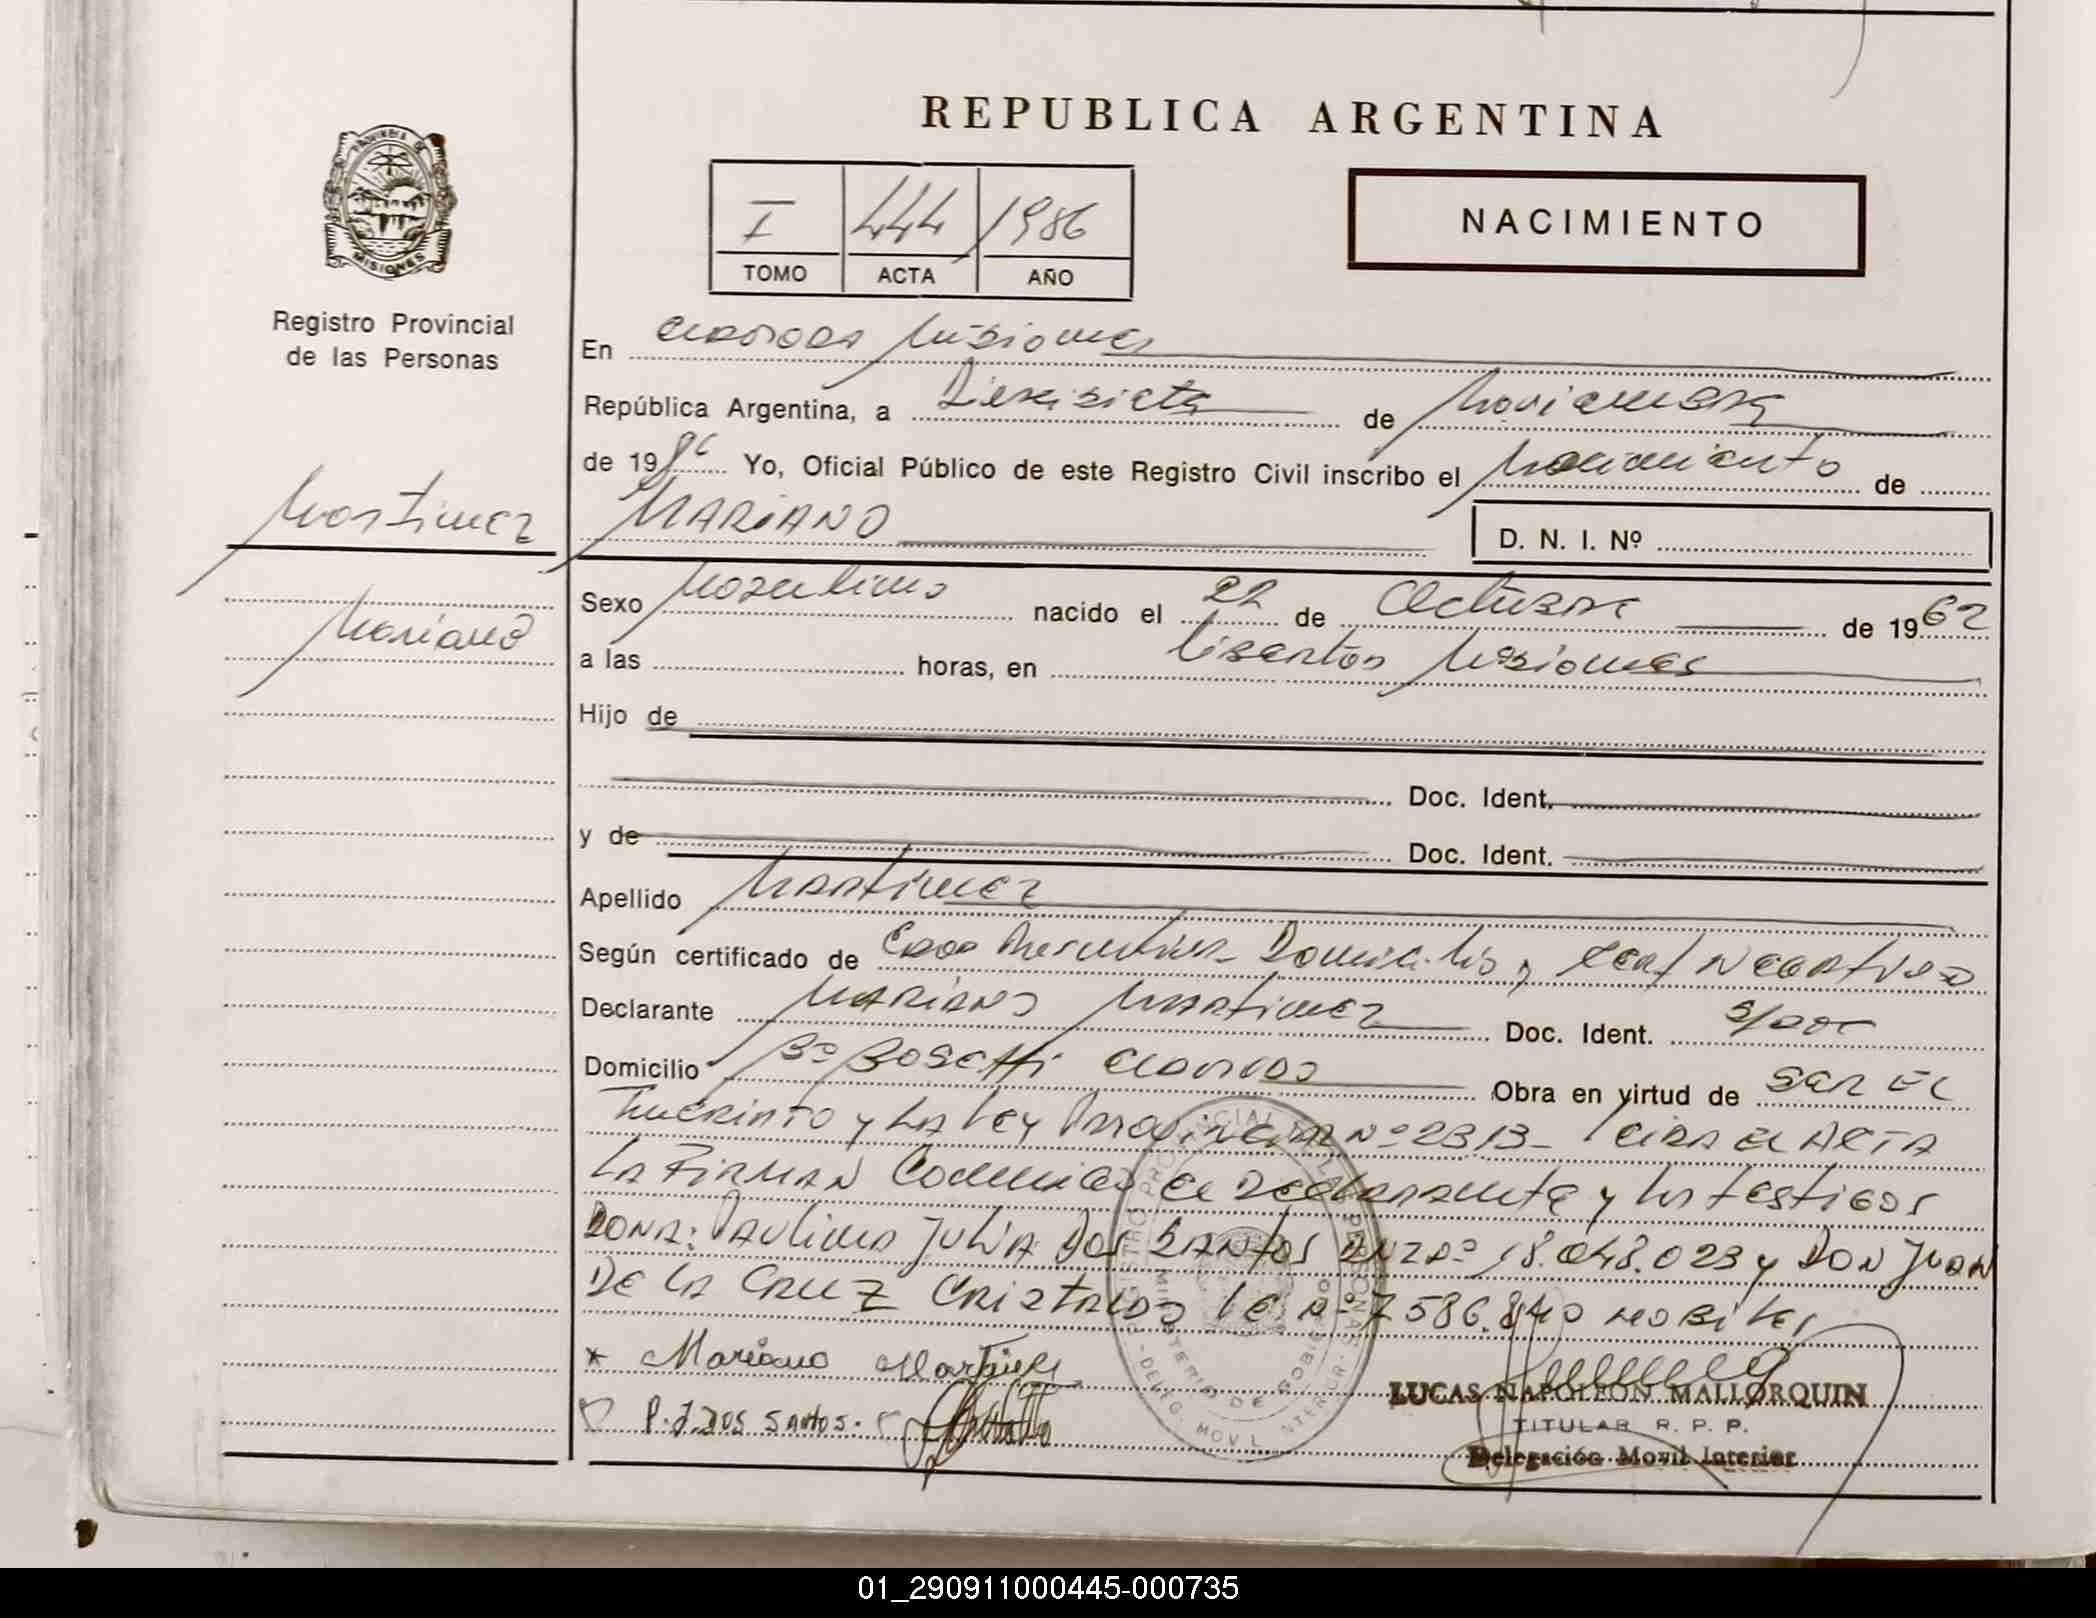 REPUBLICA ARGENTINA
PROVINCIA DE
MISIONES
I 444 1986
TOMO ACTA AÑO
NACIMIENTO
Registro Provincial
de las Personas
En Misiones
República Argentina, a Diecisiete de Noviembre
de 1986 Yo, Oficial Público de este Registro Civil inscribo el Nacimiento de
Martinez
MARIANO
D. N. I. Nº
Mariano
Sexo Masculino nacido el 22 de Octubre de 1962
a las horas, en Libertad Misiones
Hijo de
Doc. Ident.
y de Doc. Ident.
Apellido Martinez
Según certificado de Domicilio y Cert Negativo
Declarante MARIANO MARTINEZ Doc. Ident. S/Doc
Domicilio Bº Bosetti Obra en virtud de SER EL
INSCRIPTO y LA LEY PROVINCIAL Nº 2313- LEIDA EL ACTA
LA FIRMAN Conmigo el Declarante y los testigos
DONA: PAULINA JULIA DOS SANTOS DNI Nº 18.048.023 y DON JUAN
DE LA CRUZ CRISTALDO LE Nº 7586.840 HABILES
* Mariano Martinez
P.J. DOS SANTOS.
LUCAS NAPOLEON MALLORQUIN
TITULAR R. P. P.
Delegación Movil Interior
REGISTRO PROVINCIAL DE LAS PERSONAS
MINISTERIO DE GOBIERNO
-DELEG. MOVIL INTERIOR-
01_290911000445-000735